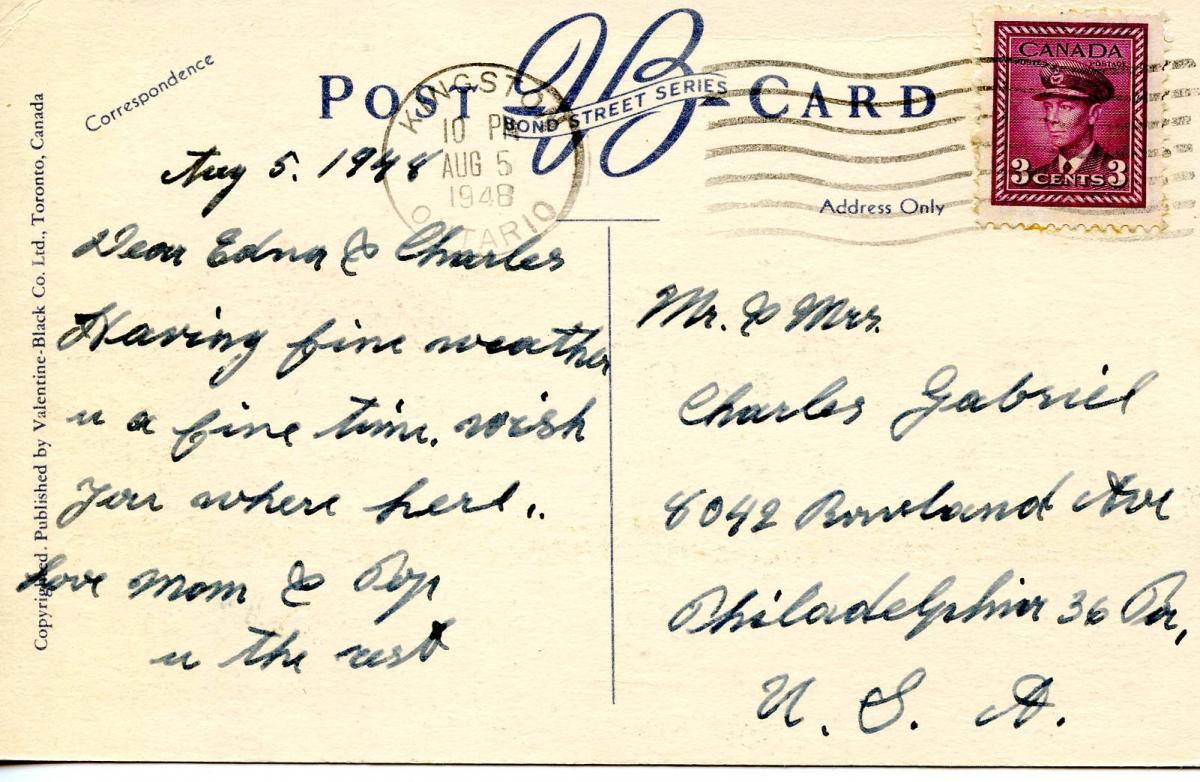 Correspondence
POST CARD
VB
BOND STREET SERIES
KINGSTON
10 PM
AUG 5
1948
ONTARIO
CANADA
POSTES POSTAGE
3 CENTS 3
Address Only
Copyrighted. Published by Valentine-Black Co. Ltd., Toronto, Canada
Aug 5. 1948
Dear Edna & Charles
Having fine weather
u a fine time. wish
you where here..
Love Mom & Pop
u the rest
Mr. & Mrs.
Charles Gabriel
6042 Rowland Ave
Philadelphia 36 Pa,
U. S. A.